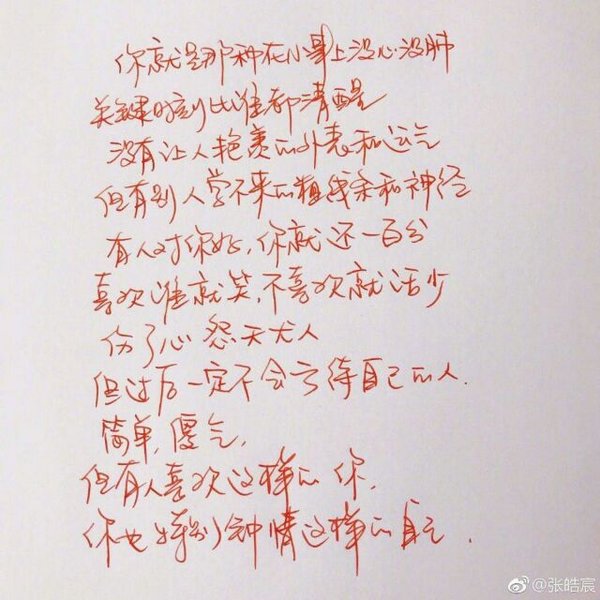 你就是那种在小事上没心没肺
关键时刻比谁都清醒
没有让人艳羡的外表和运气
但有别人学不来的粗线条和神经
有人对你好，你就还一百分
喜欢谁就笑，不喜欢就话少
伤了心怨天尤人
但过后一定不会亏待自己的人．
简单，傻气，
但有人喜欢这样的你，
你也特别钟情这样的自己．
@张皓宸